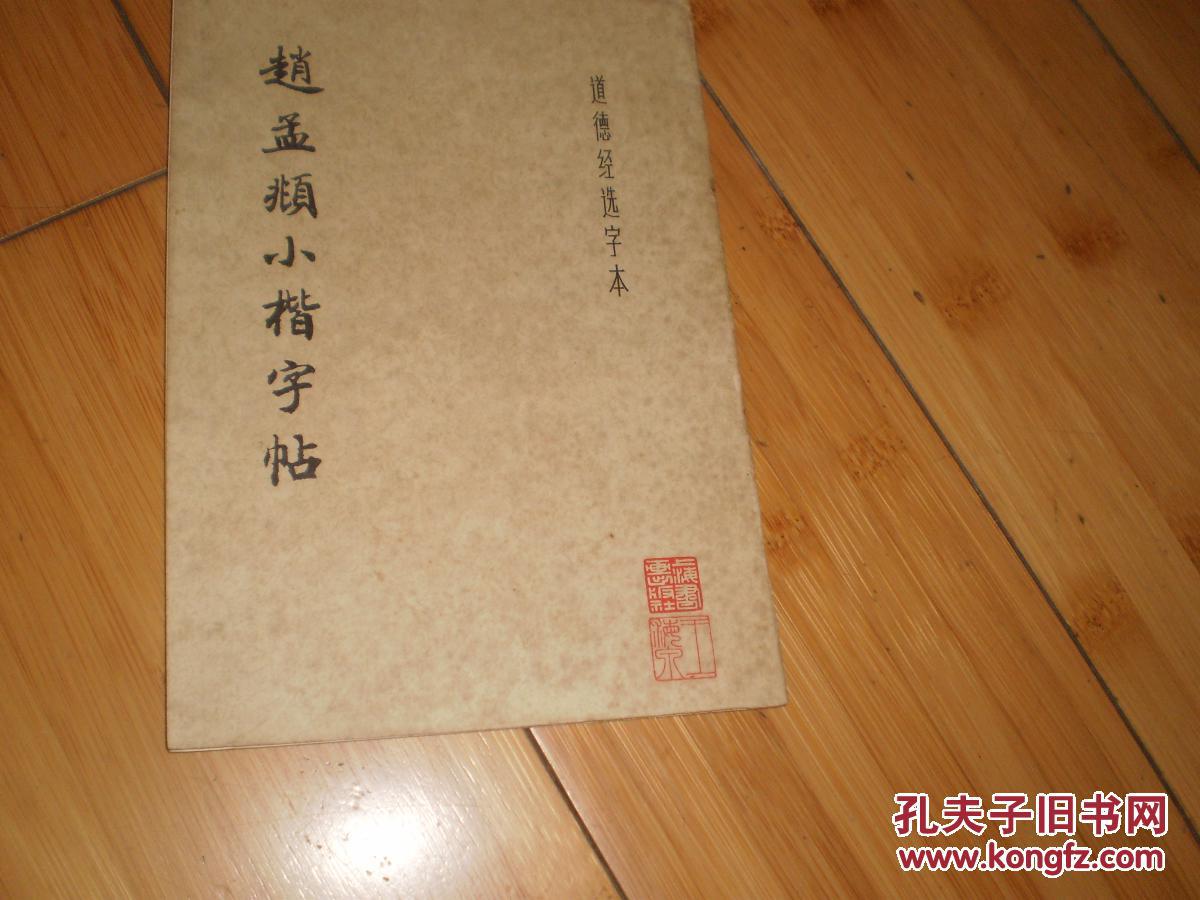 趙孟頫小楷字帖
道德经选字本
上海書畫出版社
孔夫子旧书网
www.kongfz.com